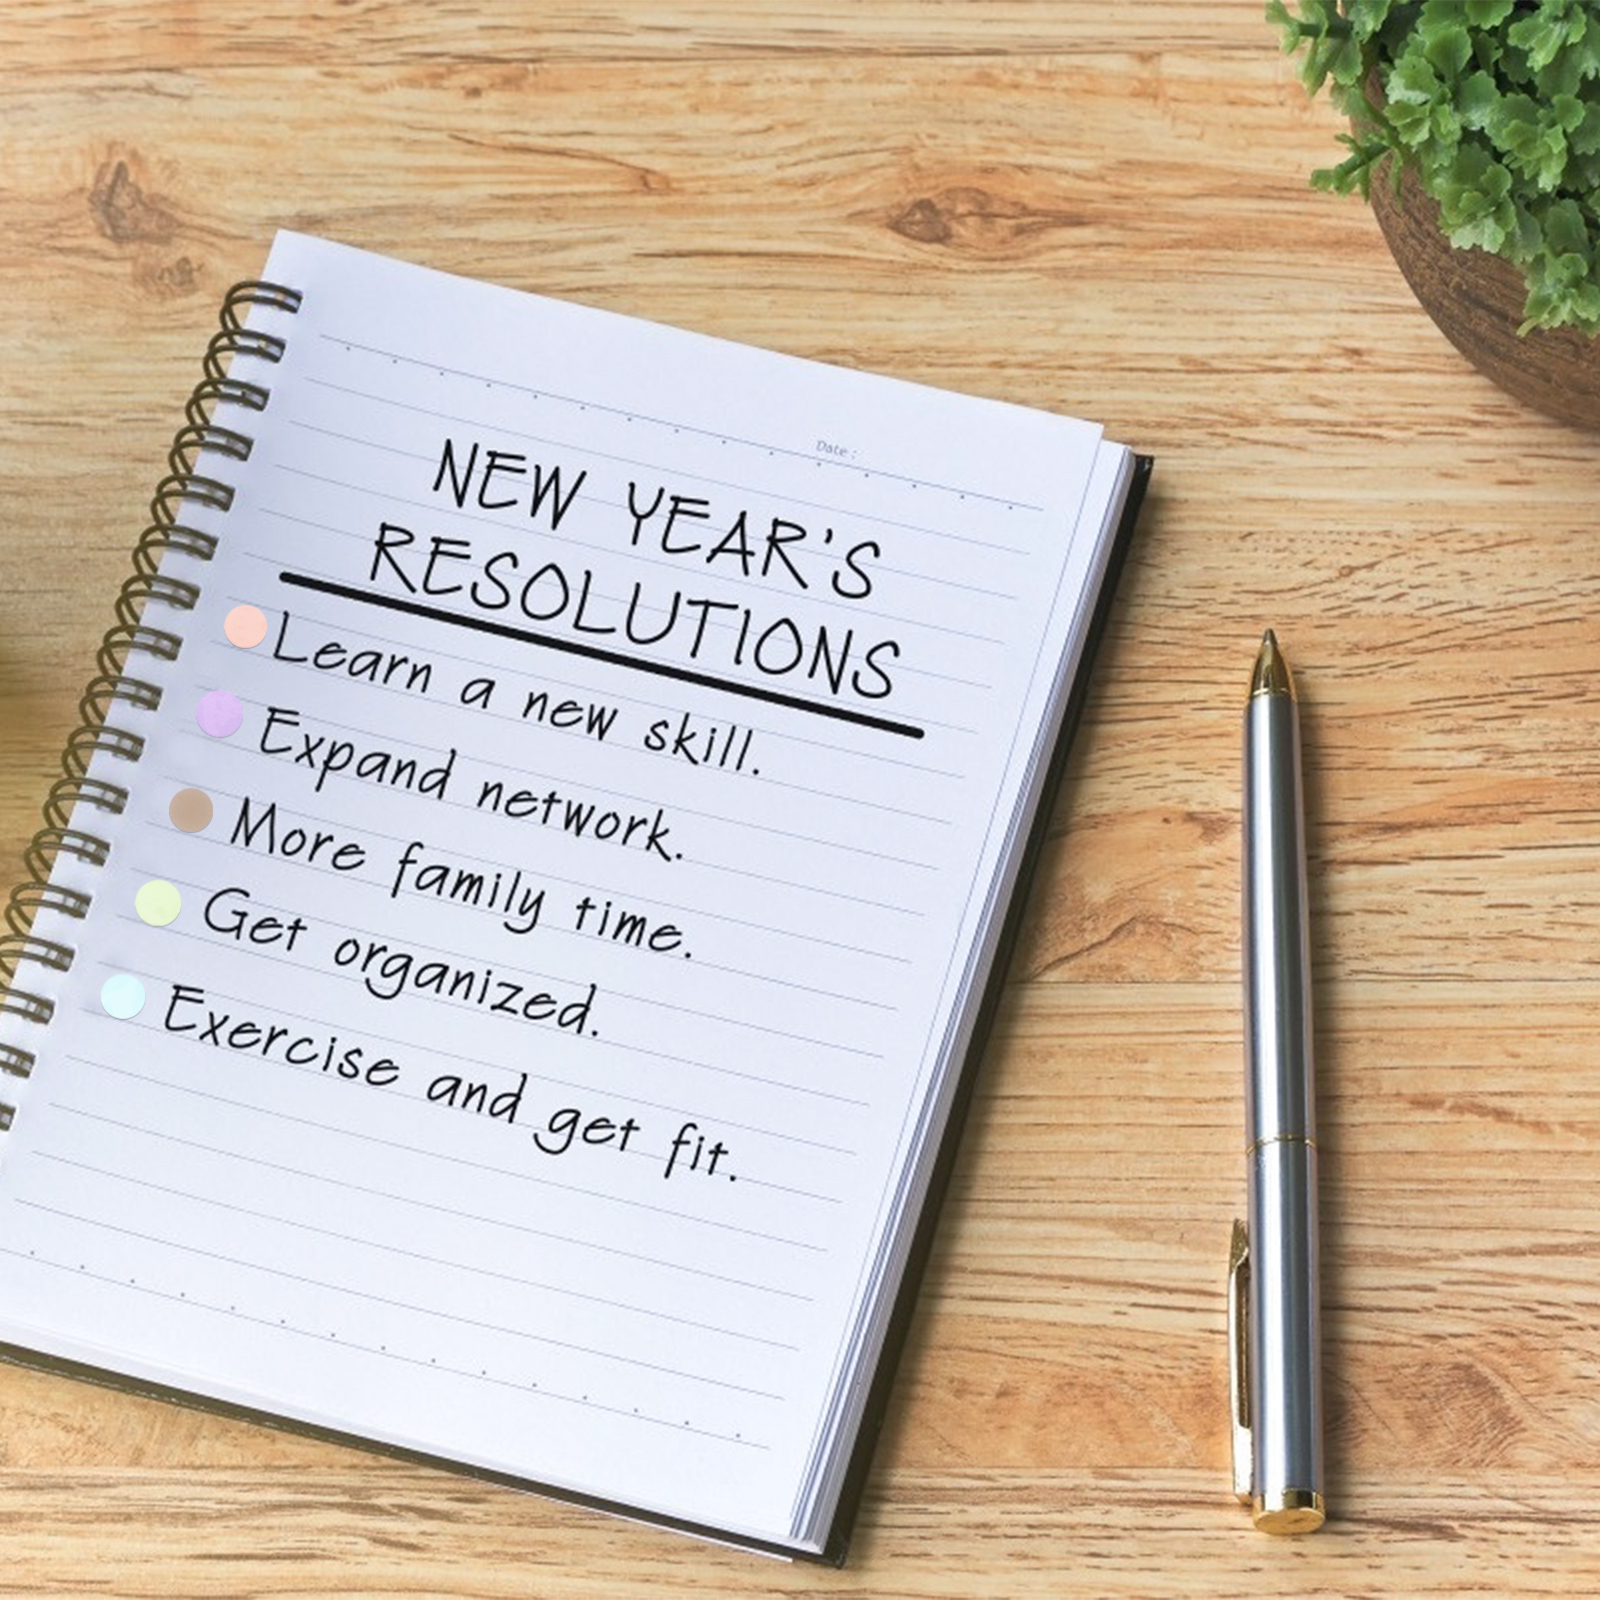 Date :
NEW YEAR'S
RESOLUTIONS
Learn a new skill.
Expand network.
More family time.
Get organized.
Exercise and get fit.